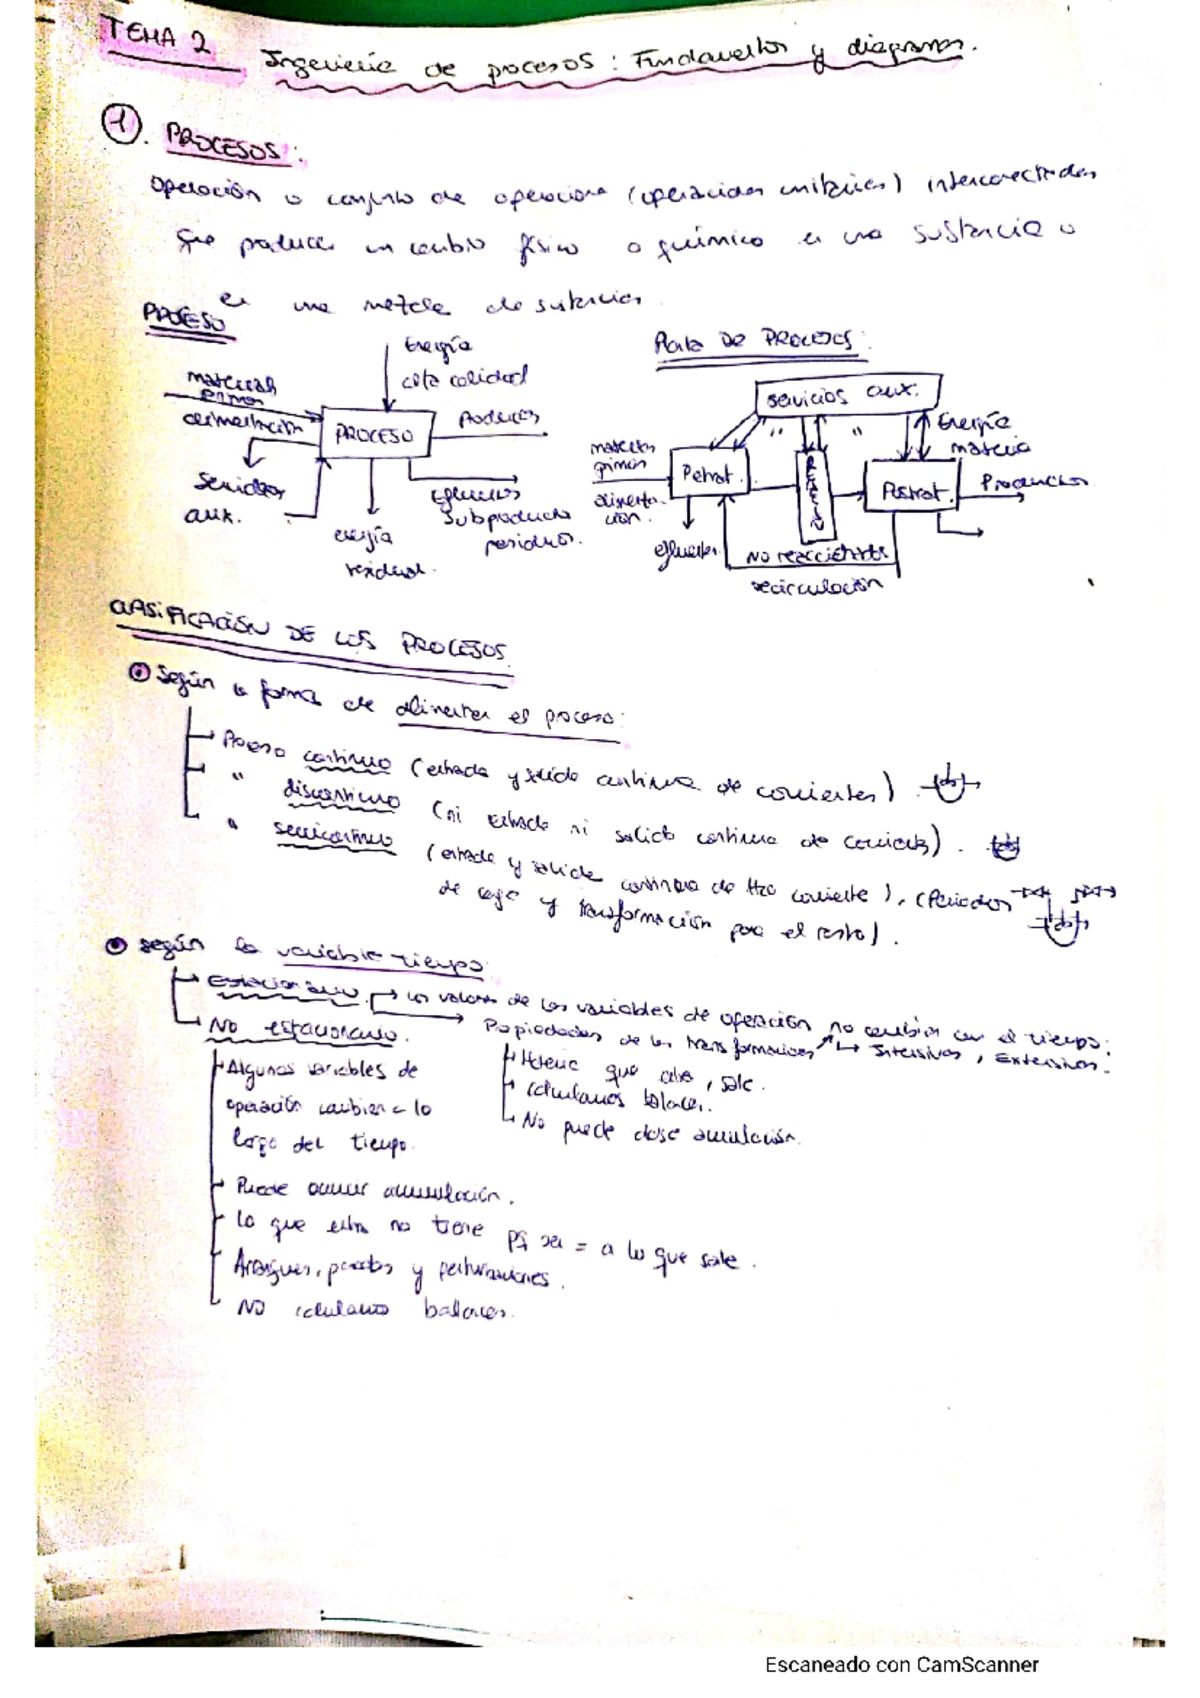 TEMA 2 Ingeniería de procesos: Fundamentos y diagramas.
1. PROCESOS:
Operación o conjunto de operaciones (operaciones unitarias) interconectadas
que producen un cambio físico o químico en una sustancia o
en una mezcla de sustancias.
PROCESO
Energía
alta calidad
materias
primas
alimentación
PROCESO
Productos
Servicios
aux.
energía
residual.
Efluentes
Subproductos
residuos.
Planta DE PROCESOS:
servicios aux.
" "
Energía
materia
materias
primas
alimenta-
ción.
Petrat.
Pstrat.
Productos
efluentes
No reaccionante
recirculación
CLASIFICACIÓN DE LOS PROCESOS.
Según la forma de alimentar el proceso:
Proceso continuo (entrada y salida continua de corrientes).
" discontinuo (ni entrada ni salida continua de corrientes).
" semicontinuo (entrada y salida continua de una corriente), (Periodos
de carga y transformación para el resto).
Según la variable tiempo:
Estacionario Los valores de las variables de operación no cambian con el tiempo:
Propiedades de las transformaciones Intensivas, Extensivas:
Materia que entra, sale.
Calculamos balances.
No puede darse acumulación.
No estacionario.
Algunas variables de
operación cambian a lo
largo del tiempo.
Puede ocurrir acumulación.
Lo que entra no tiene pq ser = a lo que sale.
Arranques, paradas y perturbaciones.
NO calculamos balances.
Escaneado con CamScanner